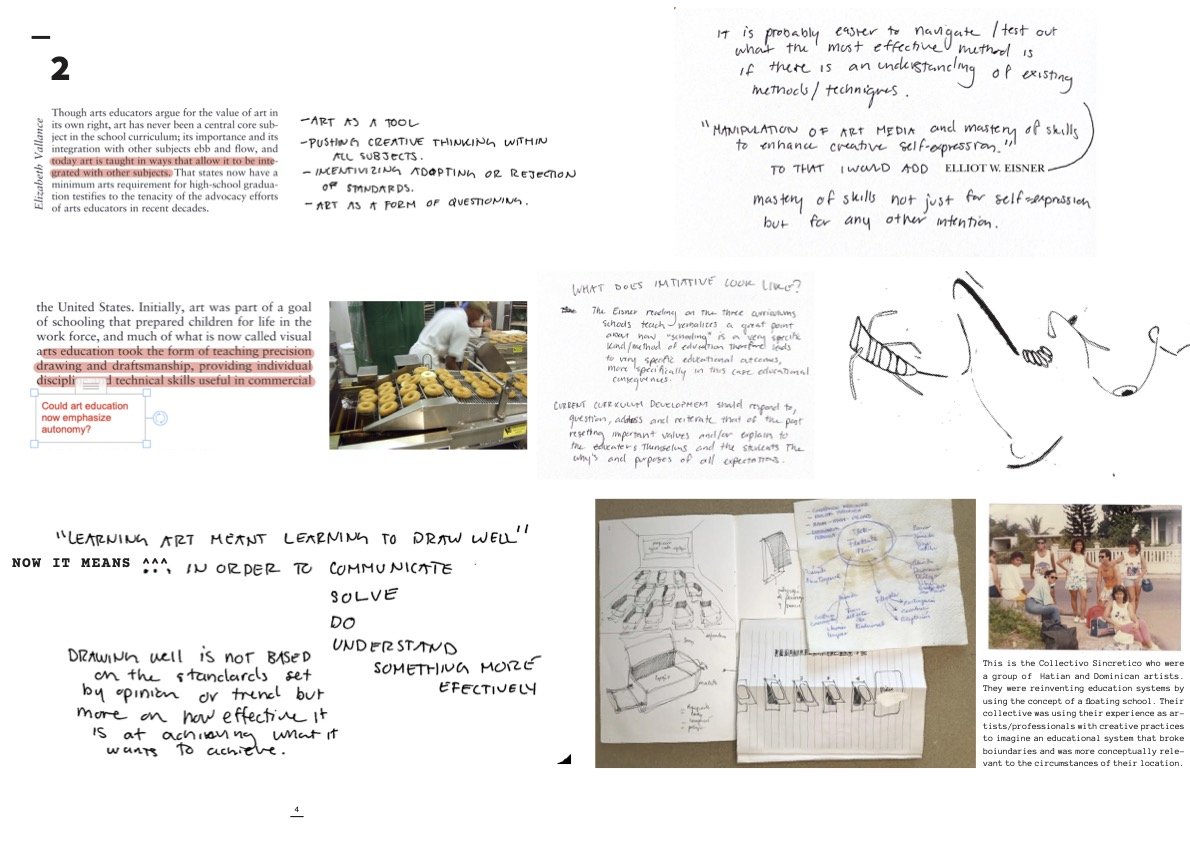 2
Elizabeth Vallance
Though arts educators argue for the value of art in
its own right, art has never been a central core sub-
ject in the school curriculum; its importance and its
integration with other subjects ebb and flow, and
today art is taught in ways that allow it to be inte-
grated with other subjects. That states now have a
minimum arts requirement for high-school gradua-
tion testifies to the tenacity of the advocacy efforts
of arts educators in recent decades.
-ART AS A TOOL
-PUSHING CREATIVE THINKING WITHIN
ALL SUBJECTS.
- INCENTIVIZING ADOPTING OR REJECTION
OF STANDARDS.
- ART AS A FORM OF QUESTIONING.
IT is probably easier to navigate / test out
what the most effective method is
if there is an understanding of existing
methods / techniques.
"MANIPULATION OF ART MEDIA and mastery of skills
to enhance creative self-expression."
TO THAT I WOULD ADD ELLIOT W. EISNER
mastery of skills not just for self-expression
but for any other intention.
the United States. Initially, art was part of a goal
of schooling that prepared children for life in the
work force, and much of what is now called visual
arts education took the form of teaching precision
drawing and draftsmanship, providing individual
discipli d technical skills useful in commercial
Could art education
now emphasize
autonomy?
WHAT DOES INITIATIVE LOOK LIKE?
The Eisner reading on the three curriculums
schools teach verbalizes a great point
about how "schooling" is a very specific
kind/method of education therefore leads
to very specific educational outcomes,
more specifically in this case educational
consequences.
CURRENT CURRICULUM DEVELOPMENT should respond to,
question, address and reiterate that of the past
resetting important values and/or explain to
the educators themselves and the students The
why's and purposes of all expectations.
"LEARNING ART MEANT LEARNING TO DRAW WELL"
NOW IT MEANS ^^^, IN ORDER TO COMMUNICATE
SOLVE
DO
UNDERSTAND
SOMETHING MORE
EFECTIVELY
DRAWING well is not BASED
on the standards set
by opinion or trend but
more on how effective it
is at achieving what it
wants to achieve.
This is the Collectivo Sincretico who were
a group of Hatian and Dominican artists.
They were reinventing education systems by
using the concept of a floating school. Their
collective was using their experience as ar-
tists/professionals with creative practices
to imagine an educational system that broke
boiundaries and was more conceptually rele-
vant to the circumstances of their location.
4